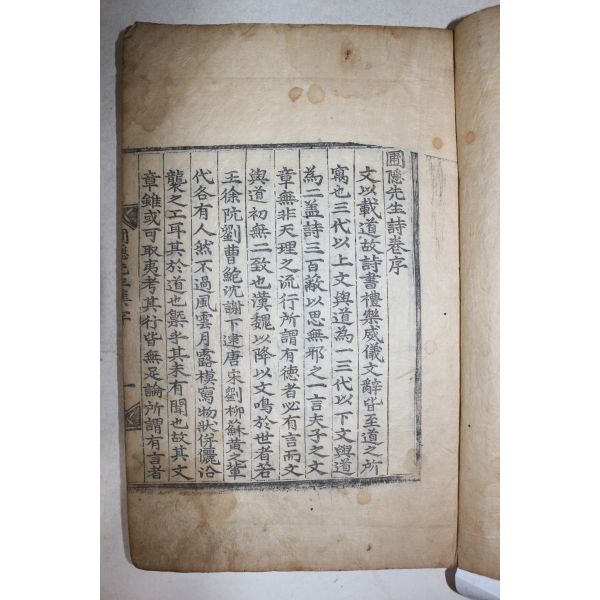 圃隱先生詩卷序
文以載道故詩書禮樂威儀文辭皆至道之所
寓也三代以上文與道為一三代以下文與道
為二盖詩三百蔽以思無邪之一言夫子之文
章無非天理之流行所謂有德者必有言而文
與道初無二致也漢魏以降以文鳴於世者若
王徐阮劉曹鮑沈謝下逮唐宋劉柳蘇黃之輩
代各有人然不過風雲月露模寫物狀倂儷沿
襲之工耳其於道也槩乎其未有聞也故其文
章雖或可取夷考其行皆無足論所謂有言者
圃隱先生集序
一